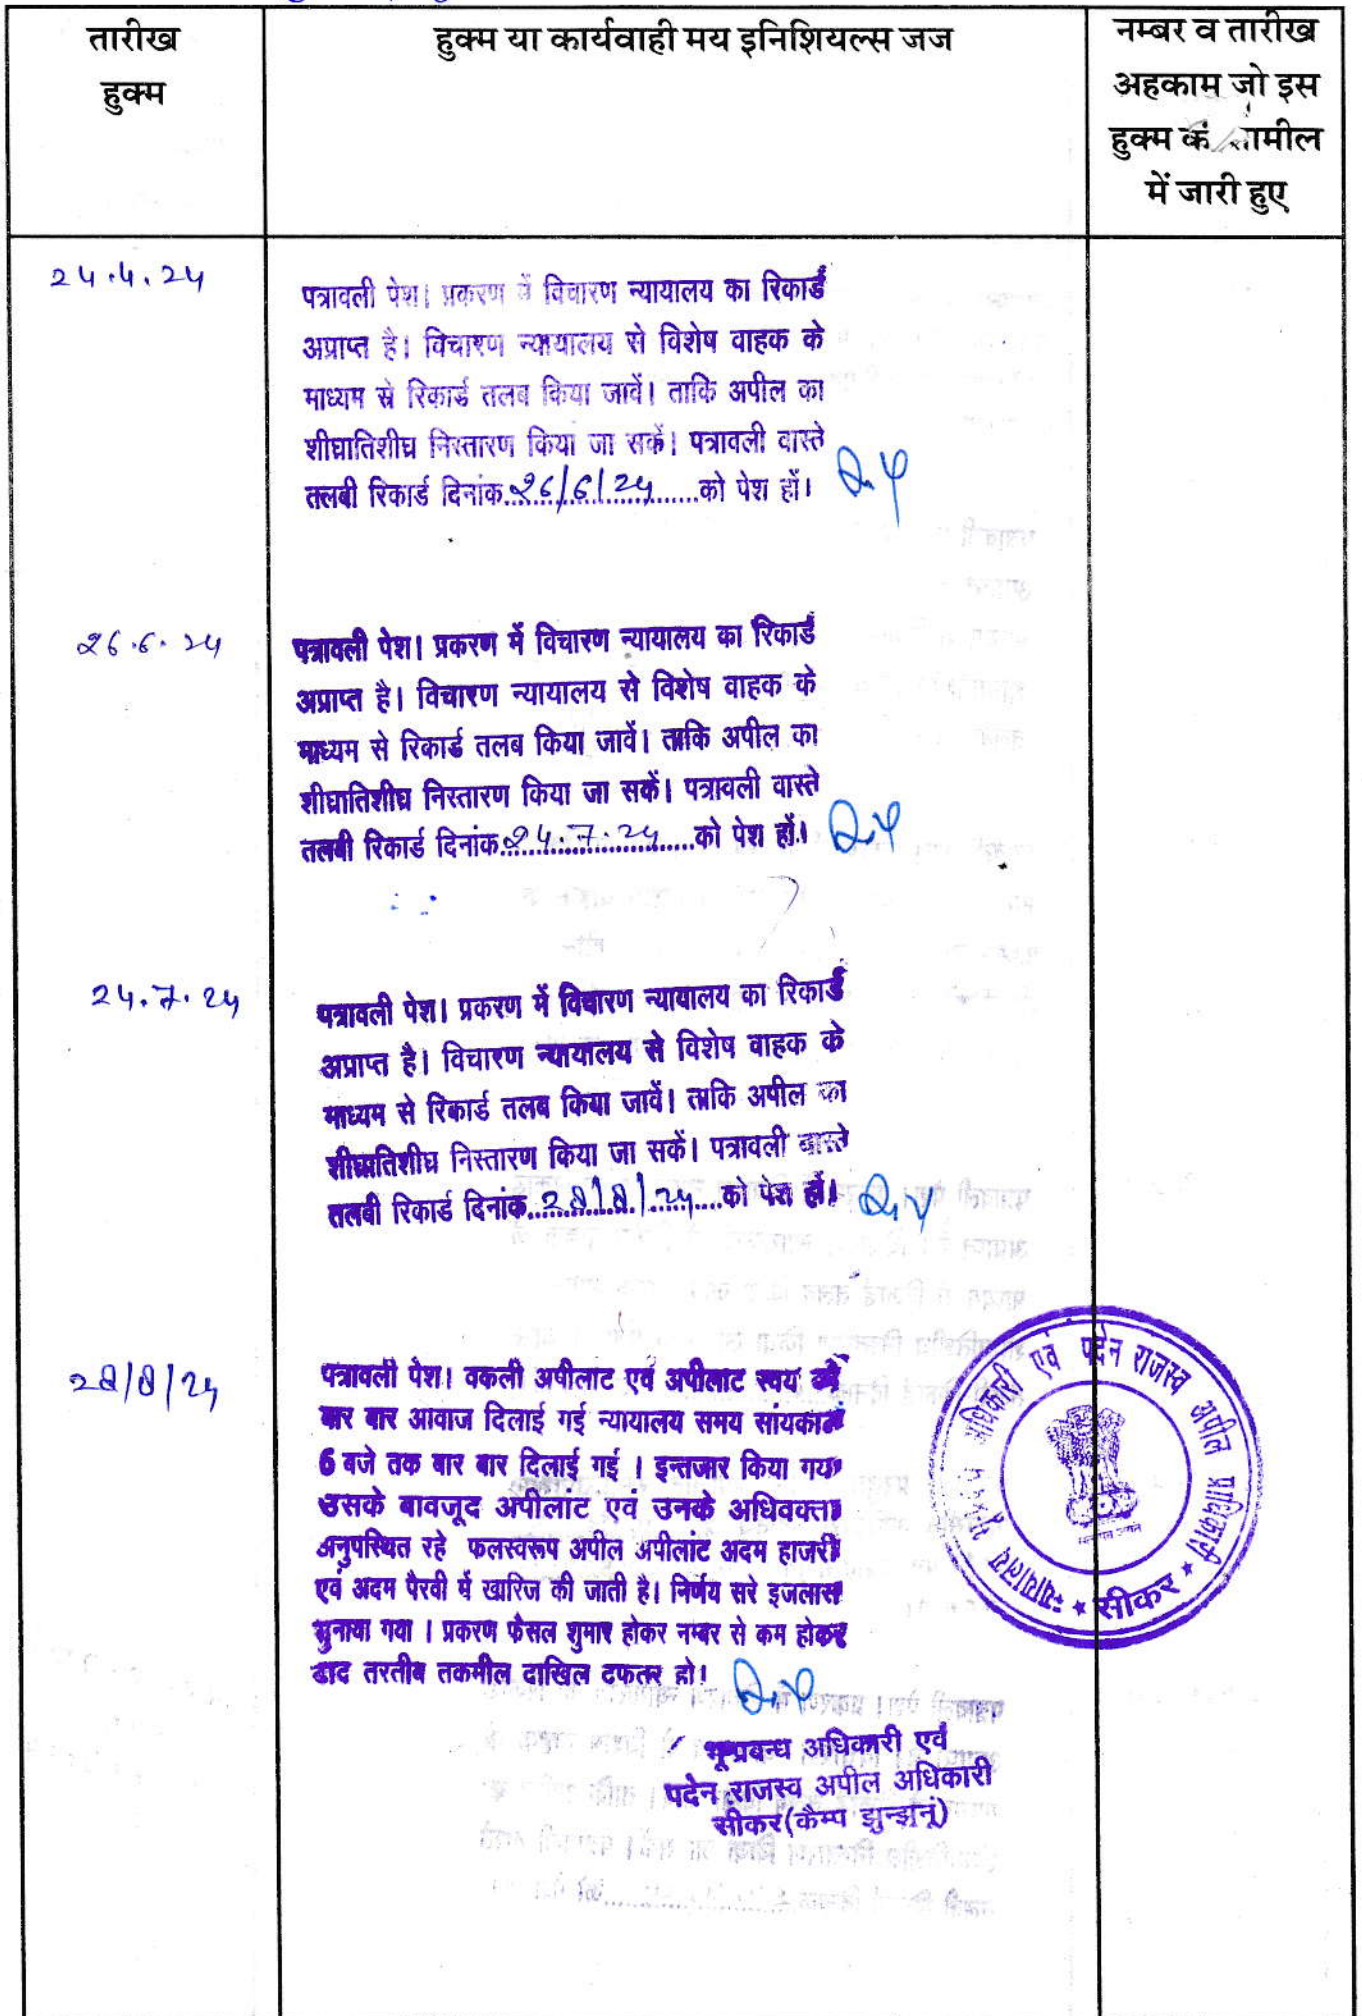 तारीख
हुक्म
हुक्म या कार्यवाही मय इनिशियल्स जज
नम्बर व तारीख
अहकाम जो इस
हुक्म की तामील
में जारी हुए
24.4.24
पत्रावली पेश। प्रकरण में विचारण न्यायालय का रिकार्ड
अप्राप्त है। विचारण न्यायालय से विशेष वाहक के
माध्यम से रिकार्ड तलब किया जावें। ताकि अपील का
शीघ्रातिशीघ्र निस्तारण किया जा सकें। पत्रावली वास्ते
तलबी रिकार्ड दिनांक..26/6/24..को पेश हों।
26.6.24
पत्रावली पेश। प्रकरण में विचारण न्यायालय का रिकार्ड
अप्राप्त है। विचारण न्यायालय से विशेष वाहक के
माध्यम से रिकार्ड तलब किया जावें। ताकि अपील का
शीघ्रातिशीघ्र निस्तारण किया जा सकें। पत्रावली वास्ते
तलबी रिकार्ड दिनांक..24.7.24..को पेश हों।
24.7.24
पत्रावली पेश। प्रकरण में विचारण न्यायालय का रिकार्ड
अप्राप्त है। विचारण न्यायालय से विशेष वाहक के
माध्यम से रिकार्ड तलब किया जावें। ताकि अपील का
शीघ्रातिशीघ्र निस्तारण किया जा सकें। पत्रावली वास्ते
तलबी रिकार्ड दिनांक..28/8/24..को पेश हों।
28/8/24
पत्रावली पेश। वकली अपीलाट एवं अपीलाट स्वयं को
बार बार आवाज दिलाई गई न्यायालय समय सांयकाल
6 बजे तक बार बार दिलाई गई । इन्तजार किया गया
उसके बावजूद अपीलाट एवं उनके अधिवक्ता
अनुपस्थित रहे फलस्वरूप अपील अपीलांट अदम हाजरी
एवं अदम पैरवी में खारिज की जाती है। निर्णय सरे इजलास
सुनाया गया । प्रकरण फैसल शुमार होकर नम्बर से कम होकर
बाद तरतीब तकमील दाखिल दफतर हो।
भूप्रबन्ध अधिकारी एवं
पदेन राजस्व अपील अधिकारी
सीकर(कैम्प झुन्झुनूं)
न्यायालय अधिकारी एवं पदेन राजस्व अपील प्राधिकारी
* सीकर *